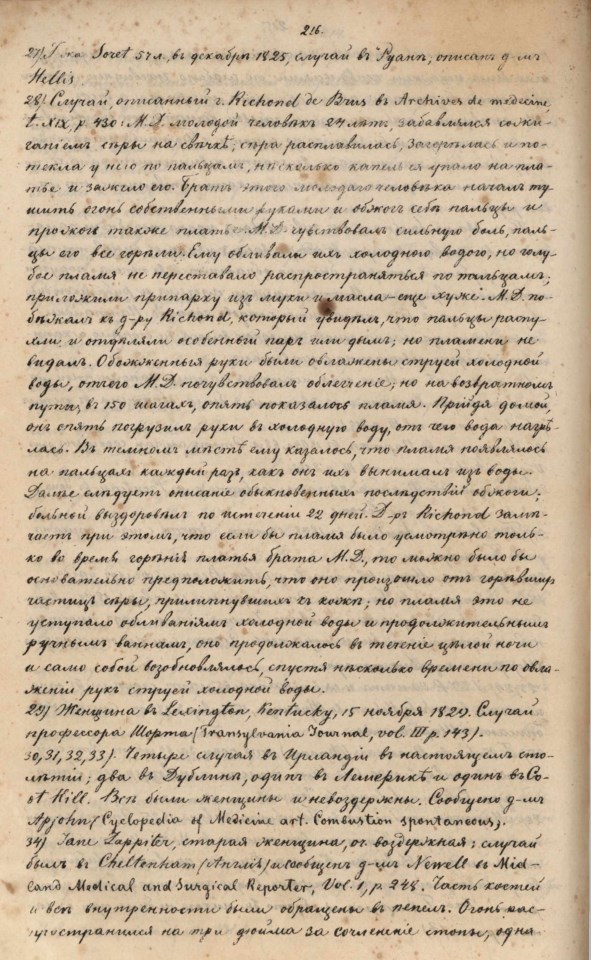 216.
27) Г-жа Soret 57 л., въ декабрѣ 1825, случай въ Руанѣ; описанъ д-мъ
Hellis.
28) Случай, описанный г. Richond de Brus въ Archives de médecine,
t. XIX, p. 430: М.Д. молодой человѣкъ 24 лѣтъ, забавлялся сожи-
ганіемъ сѣры на свѣчкѣ; сѣра расплавилась, загорѣлась и по-
текла у него по пальцамъ, нѣсколько капель ея упало на пла-
тье и зажгло его. Братъ этого молодаго человѣка началъ ту-
шить огонь собственными руками и обжогъ себѣ пальцы и
прожогъ также платье. М.Д. чувствовалъ сильную боль, паль-
цы его все горѣли. Ему обливали ихъ холодною водою, но голу-
бое пламя не переставало распространяться по пальцамъ;
приложили припарку изъ муки и масла – еще хуже. М.Д. по-
бѣжалъ къ д-ру Richond, который увидѣлъ, что пальцы распу-
хли и отдѣляли особенный паръ или дымъ; но пламени не
видалъ. Обожженныя руки были облажены струей холодной
воды, отчего М.Д. почувствовалъ облегченіе; но на возвратномъ
пути, въ 150 шагахъ, опять показалось пламя. Прийдя домой,
онъ опять погрузилъ руки въ холодную воду, отъ чего вода нагрѣ-
лась. Въ темномъ мѣстѣ ему казалось, что пламя появлялось
на пальцахъ каждый разъ, какъ онъ ихъ вынималъ изъ воды.
Далѣе слѣдуетъ описаніе обыкновенныхъ послѣдствій обжоги;
больной выздоровѣлъ по истеченіи 22 дней. Д-ръ Richond замѣ-
чаетъ при этомъ, что если бы пламя было усмотрѣно толь-
ко во время горѣнія платья брата М.Д., то можно было бы
основательно предположить, что оно произошло отъ горѣвшихъ
частицъ сѣры, прилипнувшихъ къ кожѣ; но пламя это не
уступало обливаніямъ холодной воды и продолжительнымъ
ручнымъ ваннамъ, оно продолжалось въ теченіе цѣлой ночи
и само собой возобновлялось, спустя нѣсколько времени по обла-
женіи рукъ струей холодной воды.
29) Женщина въ Lexington, Kentucky, 15 ноября 1829. Случай
профессора Шорта (Transylvania Journal, vol. III p. 143).
30, 31, 32, 33). Четыре случая въ Ирландіи въ настоящемъ сто-
лѣтіи; два въ Дублинѣ, одинъ въ Лемерикѣ и одинъ въ Co-
ot Kill. Всѣ были женщины и невоздержны. Сообщено д-мъ
Apjohn (Cyclopedia of Medicine art. Combustion spontaneous).
34) Jane Zappiter, старая женщина, оч. воздержная; случай
былъ въ Cheltenham (Англія) и сообщенъ д-мъ Newell въ Mid-
land Medical and Surgical Reporter, Vol. 1, p 248. Часть костей
и всѣ внутренности были обращены въ пепелъ. Огонь рас-
пространился на три дюйма за сочлененіе стопы, одна